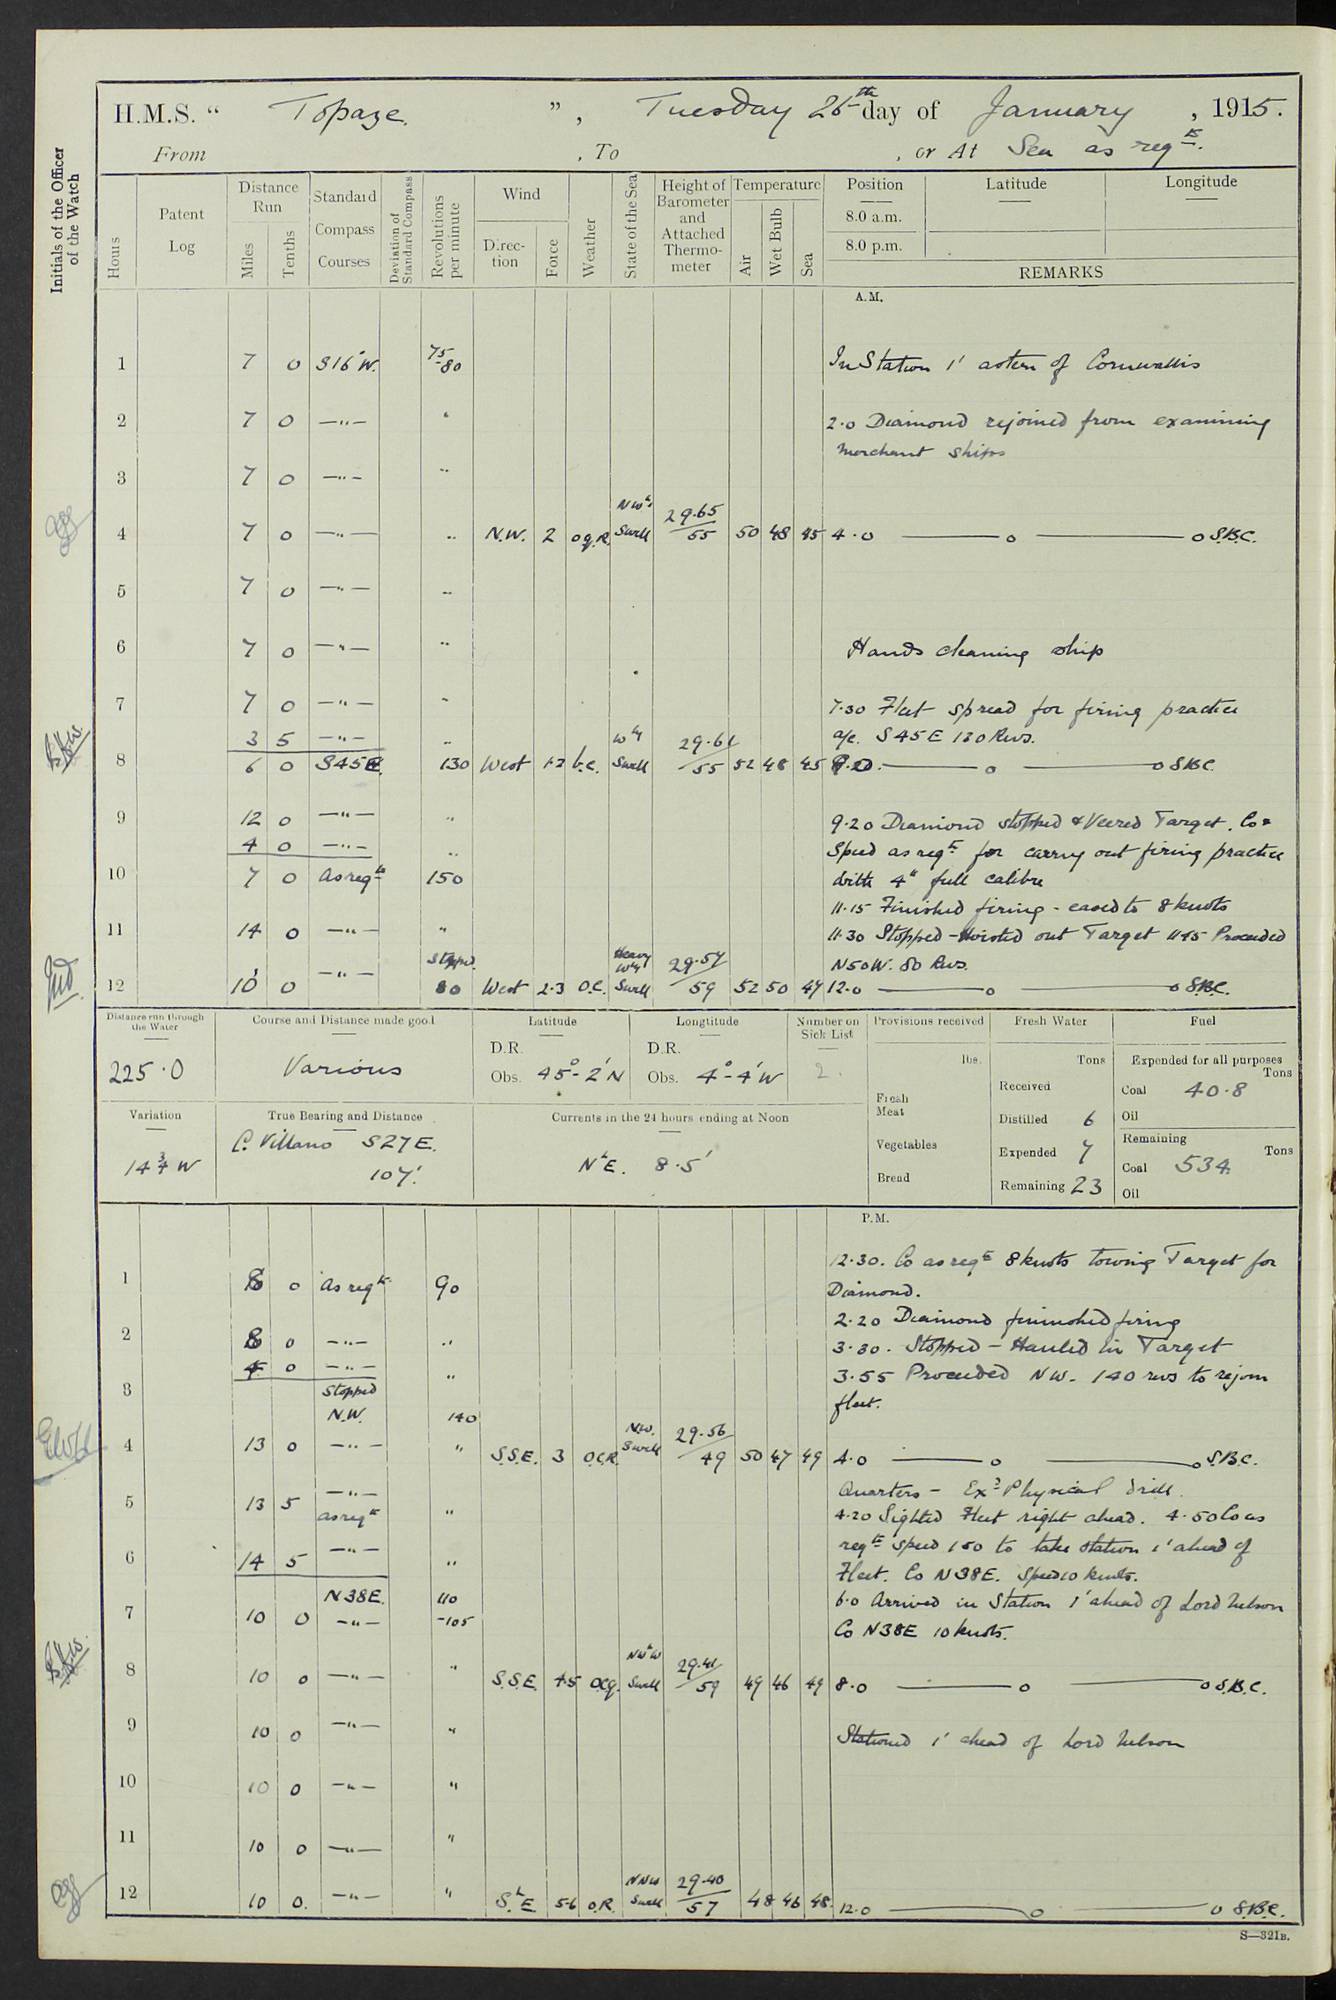 H.M.S. “ Topaze ”, Tuesday 26th day of January, 1915.
From , To , or At Sea as reqte.
Initials of the Officer of the Watch
Hours
Patent Log
Distance Run
Miles
Tenths
Standard Compass Courses
Deviation of Standard Compass
Revolutions per minute
Wind
Direc-tion
Force
Weather
State of the Sea
Height of Barometer and Attached Thermo-meter
Temperature
Air
Wet Bulb
Sea
Position
8.0 a.m.
8.0 p.m.
Latitude
Longitude
REMARKS
A.M.
1 7 0 S16°W. 75-80 In Station 1' astern of Cornwallis
2 7 0 —"— " 2.0 Diamond rejoined from examining
merchant ships
3 7 0 —"— "
4 7 0 —"— " N.W. 2 o.q.R. NWly Swell 29.65/55 50 48 45 4.0 — o — o S.B.C.
5 7 0 —"— "
6 7 0 —"— " Hands cleaning ship
7 7 0 —"— " 7.30 Fleet spread for firing practice
3 5 —"— " a/c. S45E 130 Revs.
8 6 0 S45E. 130 West 1-2 b.c. Wly Swell 29.61/55 52 48 45 — o — o S.B.C.
9 12 0 —"— " 9.20 Diamond stopped & Veered Target. Co &
4 0 —"— " Speed as reqte for carry out firing practice
10 7 0 As reqte 150 with 4" full calibre
11.15 Finished firing - eased to 8 knots
11 14 0 —"— " 11.30 Stopped - Hoisted out Target 1145 Proceeded
Stopped. N50W. 80 Revs.
12 10 0 —"— 80 West 2.3 O.C. Heavy Wly Swell 29.57/59 52 50 47 12.0 — o — o S.B.C.
Distance run through the Water
225.0
Course and Distance made good
Various
Latitude
D.R.
Obs. 45°-2'N
Longtitude
D.R.
Obs. 4°-4'W
Number on Sick List
2.
Provisions received
lbs.
Fresh Meat
Vegetables
Bread
Fresh Water
Tons
Received
Distilled 6
Expended 7
Remaining 23
Fuel
Expended for all purposes
Tons
Coal 40.8
Oil
Remaining
Tons
Coal 534
Oil
Variation
14 3/4 W
True Bearing and Distance
C. Villano S27E.
107'.
Currents in the 24 hours ending at Noon
NbE. 8.5'
P.M.
12.30. Co as reqte 8 knots towing Target for
1 8 0 As reqte 90 Diamond.
2.20 Diamond finished firing
2 8 0 —"— " 3.30. Stopped - Hauled in Target
4 0 —"— " 3.55 Proceeded NW. 140 revs to rejoin
3 Stopped fleet.
N.W. 140
4 13 0 —"— " S.S.E. 3 O.C.R. N.W. Swell 29.56/49 50 47 49 4.0 — o — o S.B.C.
Quarters - Exd Physical drill.
5 13 5 —"— as reqte " 4.20 Sighted Fleet right ahead. 4.50 Co as
6 14 5 —"— " reqte speed 150 to take station 1' ahead of
Fleet. Co N38E. Speed 10 knots.
N38E. 110 6.0 Arrived in Station 1' ahead of Lord Nelson
7 10 0 —"— -105 Co N38E 10 knots.
8 10 0 —"— " S.S.E. 4.5 O.C.q. NWbW Swell 29.41/59 49 46 49 8.0 — o — o S.B.C.
9 10 0 —"— " Stationed 1' ahead of Lord Nelson
10 10 0 —"— "
11 10 0 —"— "
12 10 0. —"— " SbE 5.6 O.R. NNW Swell 29.40/57 48 46 48. 12.0 — o — o S.B.C.
S—321B.